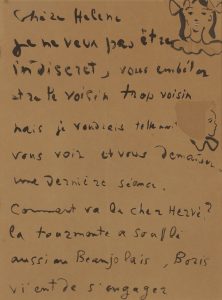 chère Helene
je ne veux pas être
indiscret, vous embêter
être le voisin trop voisin
mais je voudrais tellement
vous voir et vous demander
une dernière séance.
Comment va le cher Hervé?
la tourmente a soufflé
aussi au Beaujolais, Boris
vient de s'engager